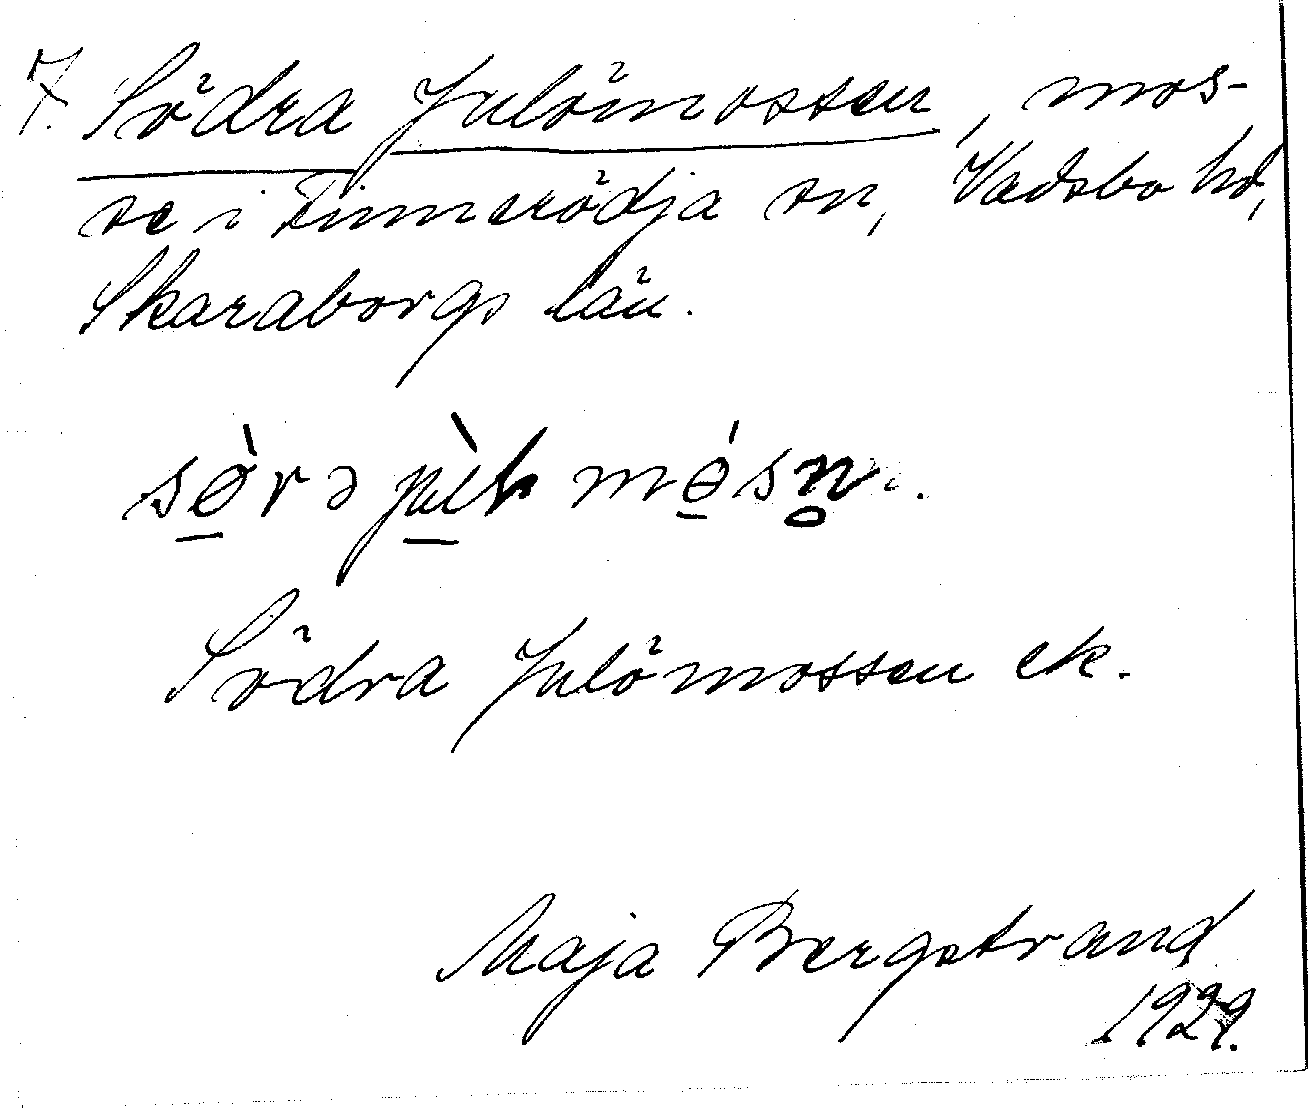 7. Södra Julömossen, mos-
se i Tinnerödja sn, Vadsbo hd,
Skaraborgs län.
Södra Julömossen ek.
Maja Bergstrand
1929.